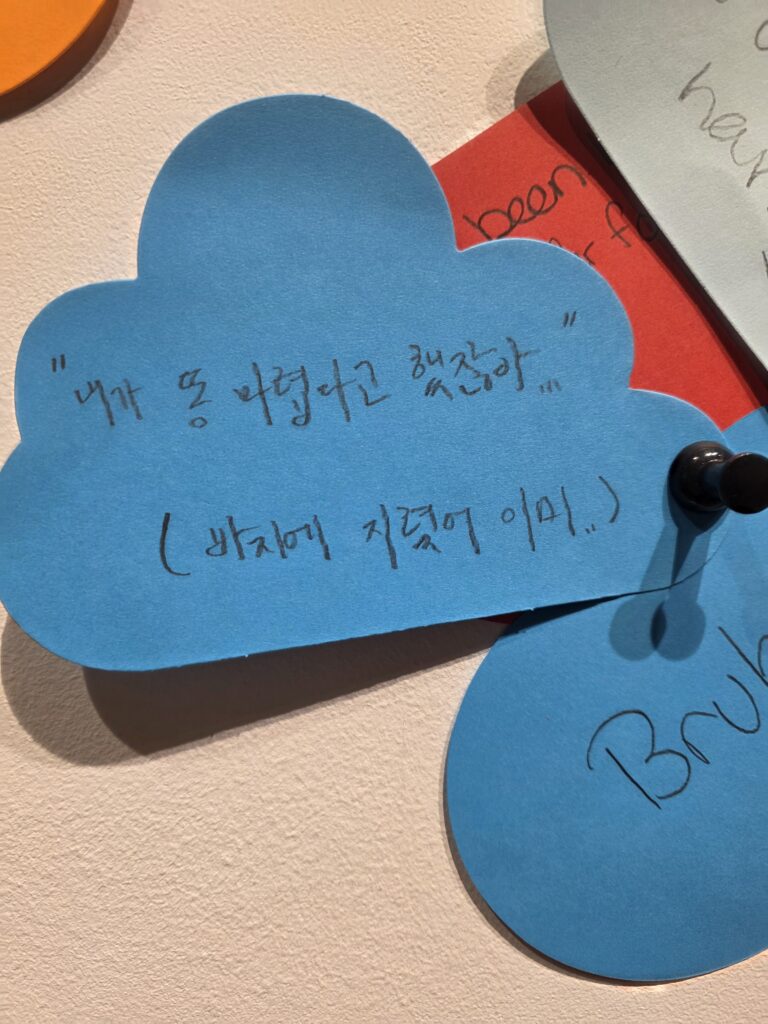 "내가 똥 마렵다고 했잖아..."
(바지에 지렸어 이미..)
been
har
Bruh